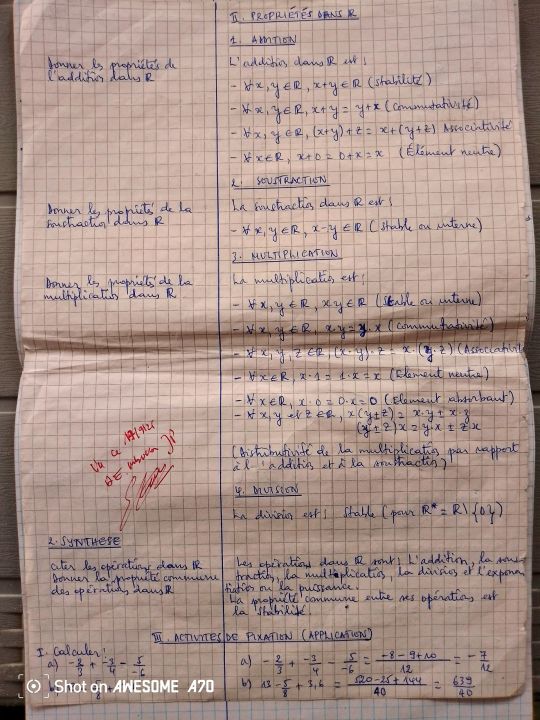 II. PROPRIÉTÉS DANS R
1. ADDITION
Donner les propriétés de
l'addition dans R
L'addition dans R est :
- ∀ x, y ∈ R, x+y ∈ R (stabilité)
- ∀ x, y ∈ R, x+y = y+x (commutativité)
- ∀ x, y ∈ R, (x+y)+z = x+(y+z) Associativité
- ∀ x ∈ R, x+0 = 0+x = x (Élément neutre)
2. SOUSTRACTION
Donner les propriétés de la
soustraction dans R
La soustraction dans R est :
- ∀ x, y ∈ R, x-y ∈ R (stable ou interne)
3. MULTIPLICATION
Donner les propriétés de la
multiplication dans R
La multiplication est :
- ∀ x, y ∈ R, x.y ∈ R (stable ou interne)
- ∀ x, y ∈ R, x.y = y.x (commutativité)
- ∀ x, y, z ∈ R, (x.y).z = x.(y.z) (Associativité
- ∀ x ∈ R, x.1 = 1.x = x (Élément neutre)
- ∀ x ∈ R, x.0 = 0.x = 0 (Élément absorbant)
- ∀ x, y et z ∈ R, x(y±z) = x.y ± x.z
(y±z)x = y.x ± z.x
(Distributivité de la multiplication par rapport
à l'addition et à la soustraction)
Vu ce
4. DIVISION
La division est : Stable (pour R* = R\{0})
2. SYNTHESE
Citer les opérations dans R
Donner la propriété commune
des opérations dans R
Les opérations dans R sont : L'addition, la sous-
traction, la multiplication, la division et l'exponen
tiation ou la puissance.
La propriété commune entre ses opérations est
la stabilité.
III. ACTIVITÉS DE FIXATION (APPLICATION)
I. Calculer :
a) -2/3 + -3/4 - 5/-6
a) -2/3 + -3/4 - 5/-6 = -8-9+10/12 = -7/12
b) 13 - 5/8 + 3,6 = 520-25+144/40 = 639/40
Shot on AWESOME A70